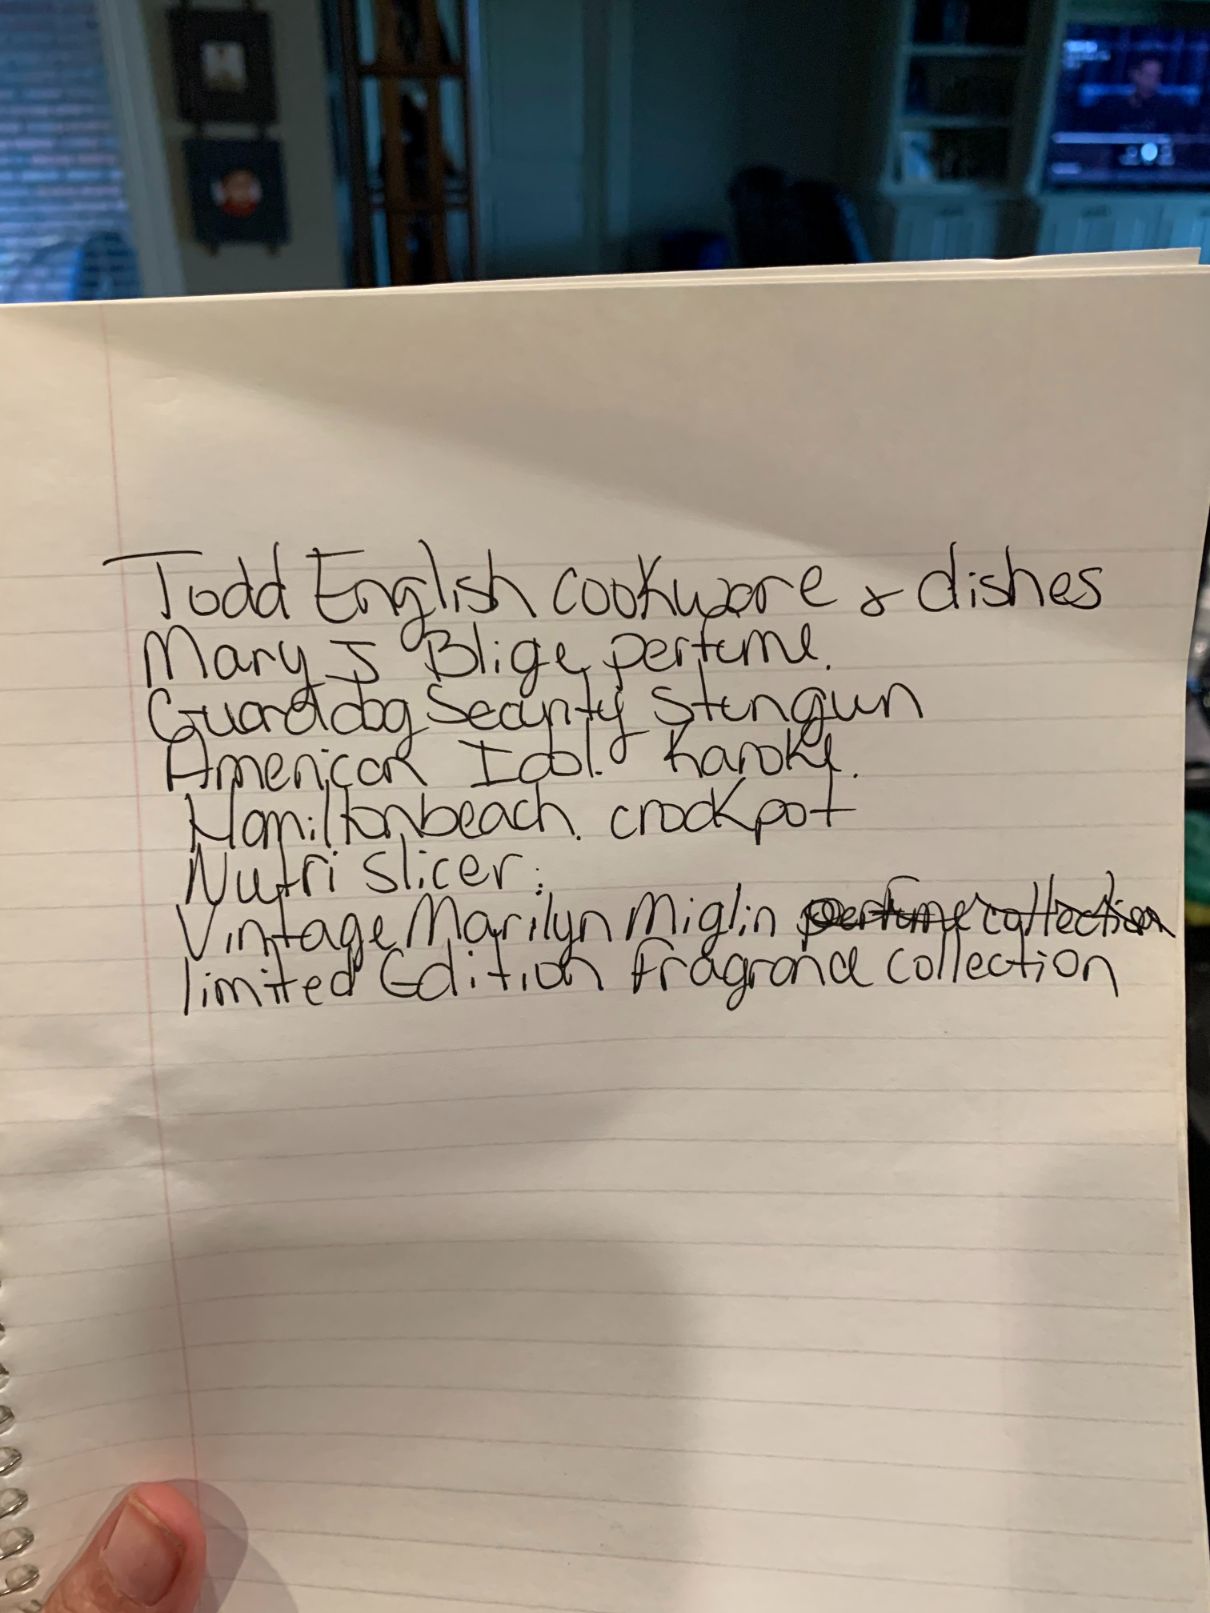 Todd English cookware & dishes
Mary J Blige perfume.
Guarddog Security Stungun
American Idol. Karoke.
Hamiltonbeach. crockpot
Nutri slicer.
Vintage Marilyn Miglin perfume collection
limited Edition fragrance collection